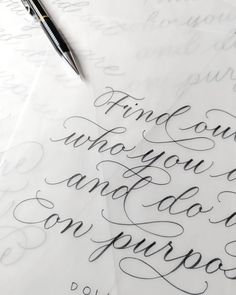 Find ou
who you a
and do i
on purpos
DOL